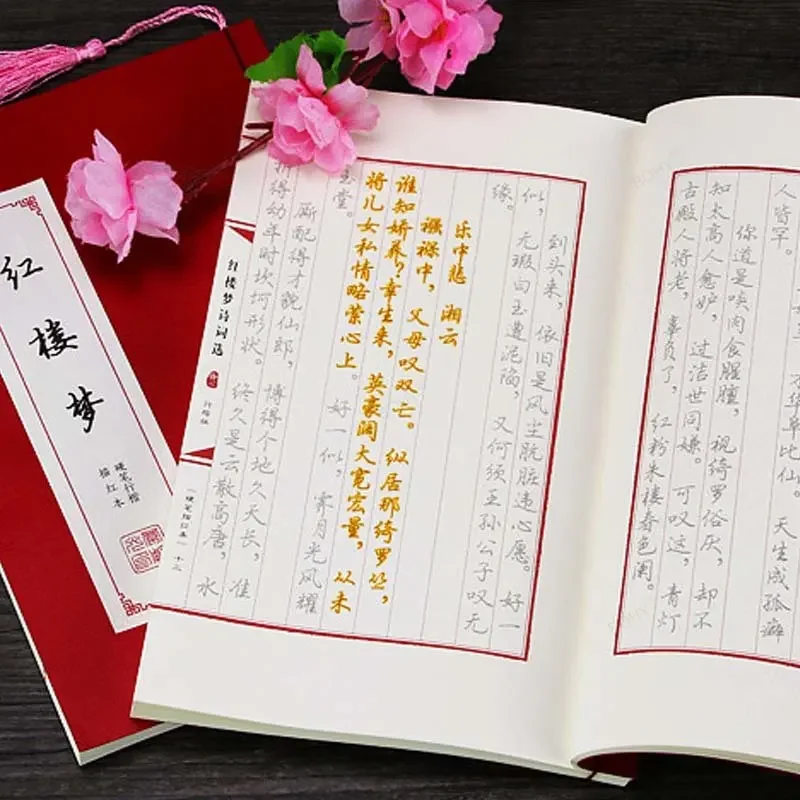 红楼梦
硬笔行楷
描红本
华阜比仙。天生成孤癖
人皆罕。
你道是啖肉食腥膻，视绮罗俗厌，却不
知太高人愈妒，过洁世同嫌。可叹这，青灯
古殿人将老，辜负了，红粉朱楼春色阑。
到头来，依旧是风尘肮脏违心愿。好一
似，无瑕白玉遭泥陷，又何须王孙公子叹无
缘。
乐中悲 湘云
襁褓中，父母叹双亡。纵居那绮罗丛，
谁知娇养？幸生来，英豪阔大宽宏量，从未
将儿女私情略萦心上。好一似，霁月光风耀
玉堂。
厮配得才貌仙郎，博得个地久天长，准
折得幼年时坎坷形状。终久是云散高唐，水
红楼梦诗词选
行楷版
《硬笔描红本》十三